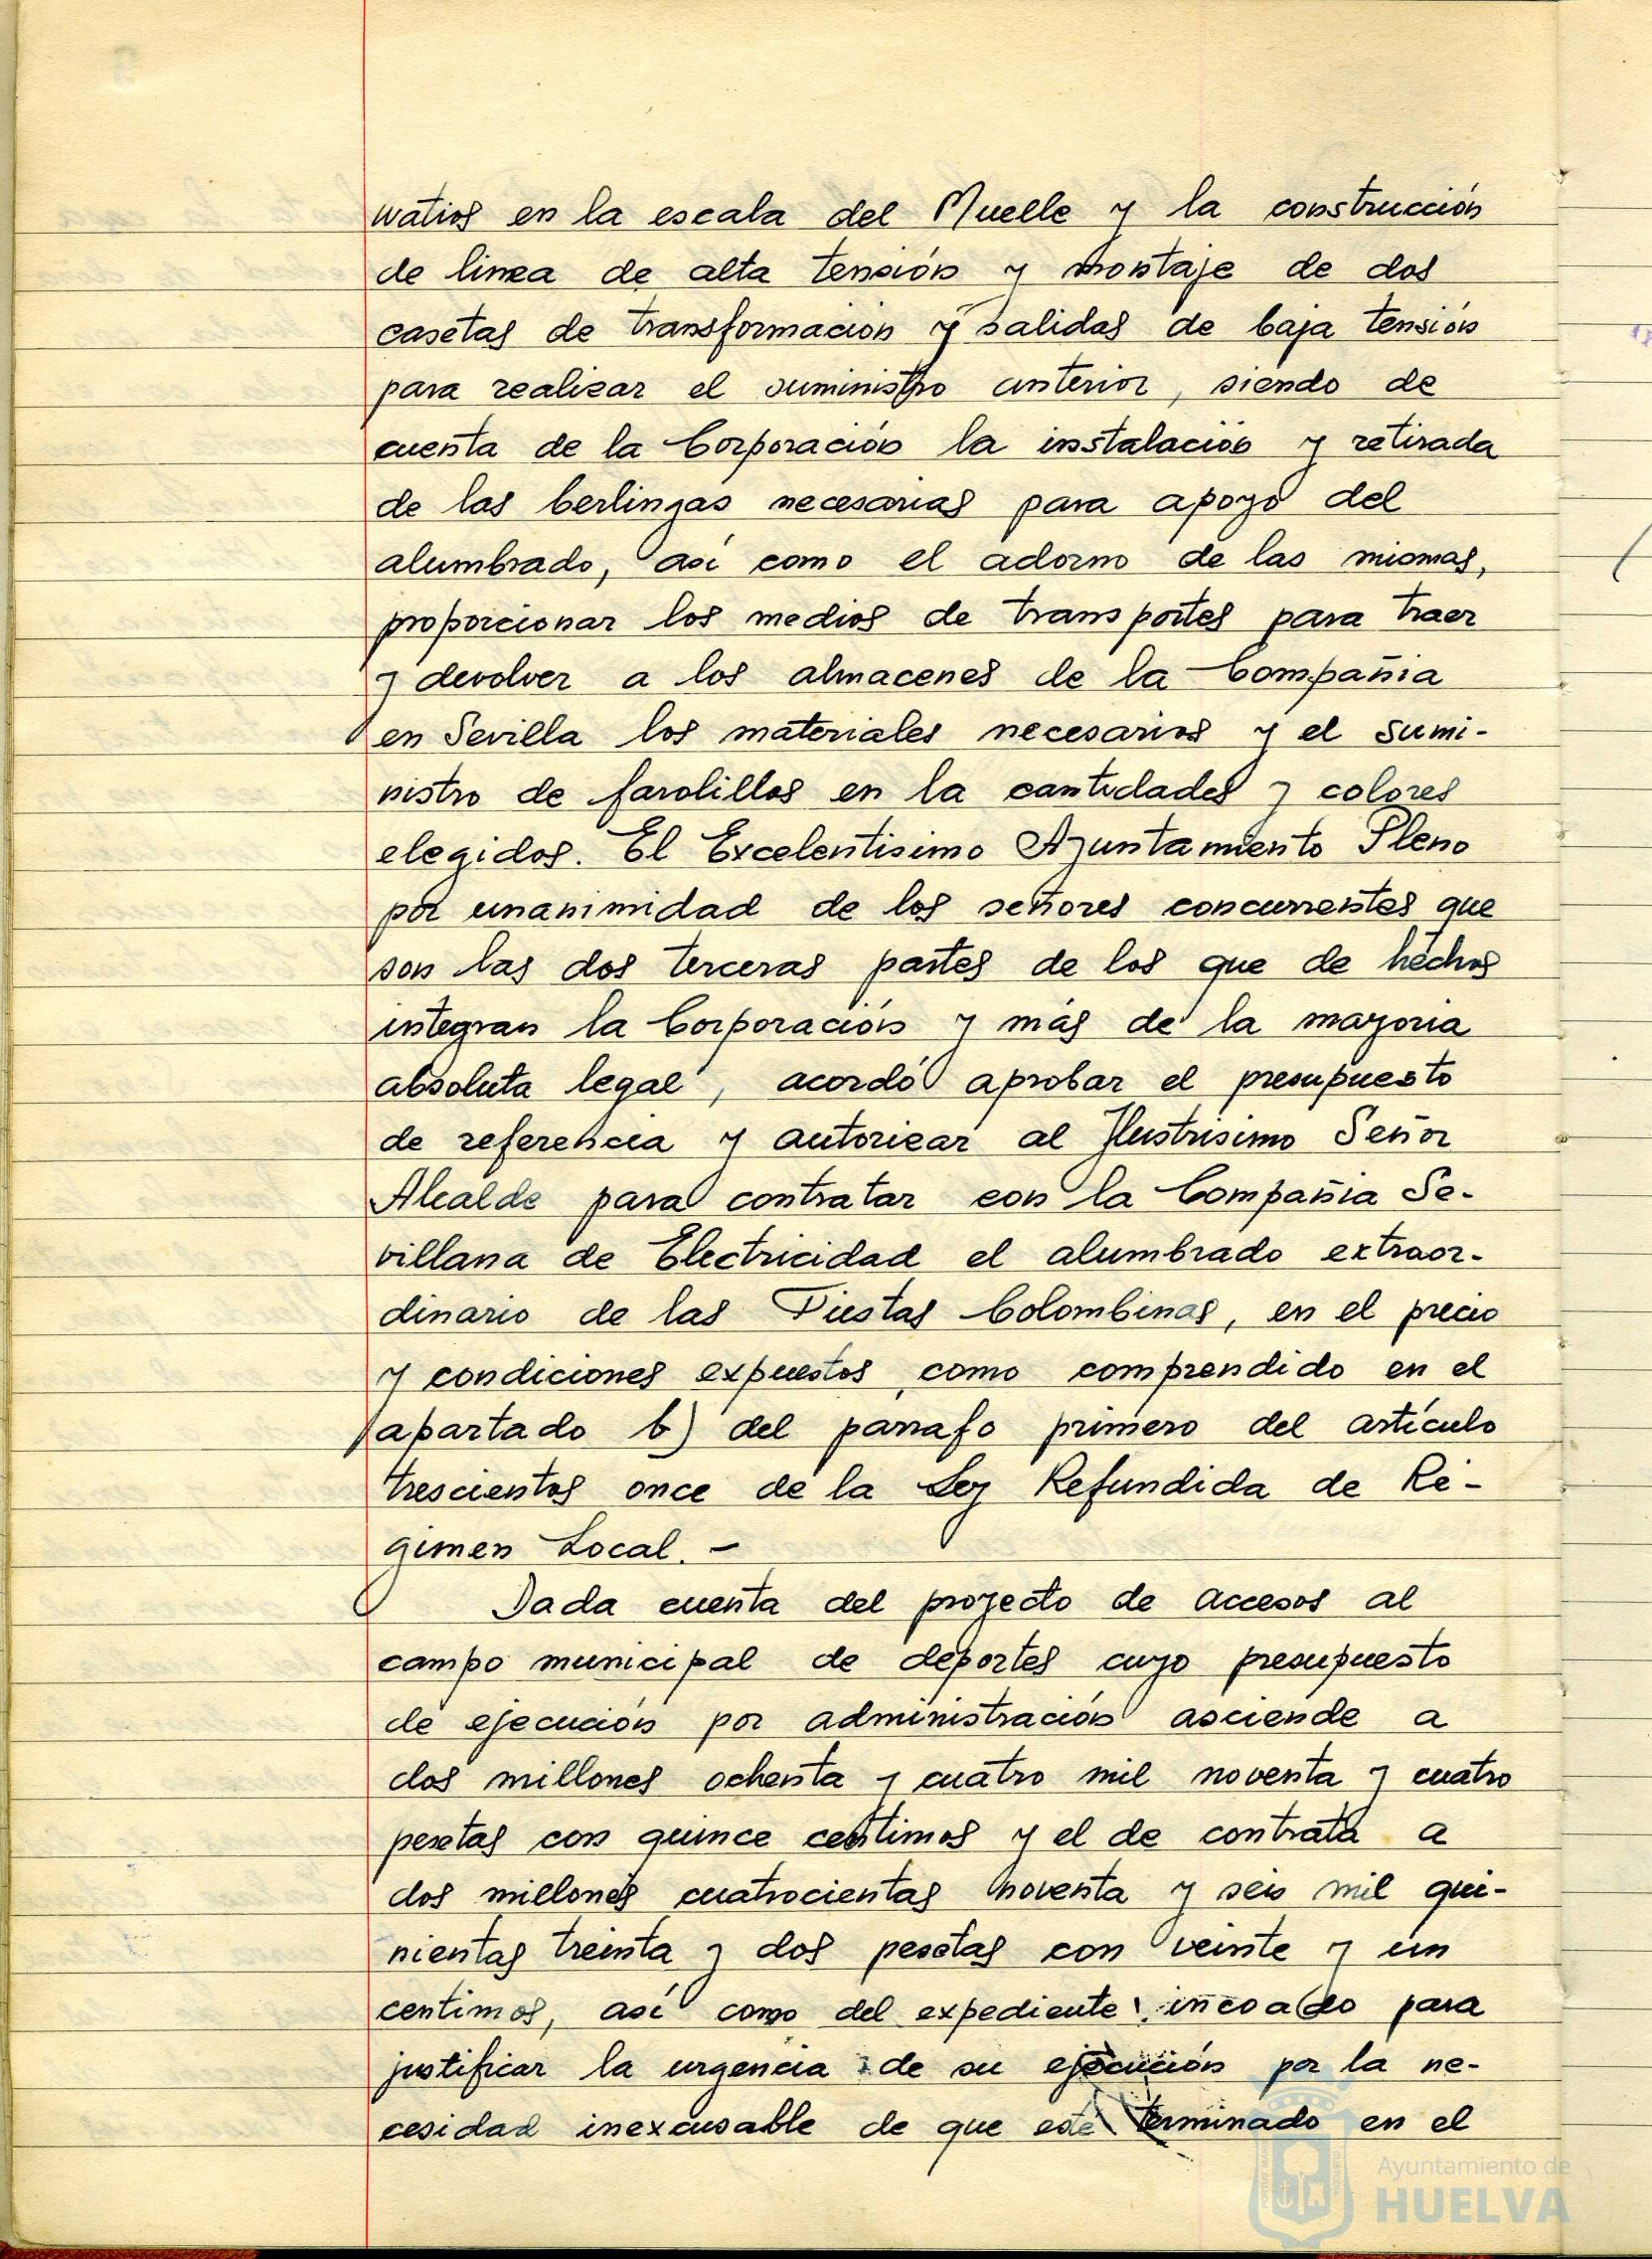 watios en la escala del Muelle y la construcción
de linea de alta tensión y montaje de dos
casetas de transformacion y salidas de baja tensión
para realizar el suministro anterior, siendo de
cuenta de la Corporación la instalación y retirada
de las berlingas necesarias para apoyo del
alumbrado, asi como el adorno de las mismas,
proporcionar los medios de transportes para traer
y devolver a los almacenes de la Compañia
en Sevilla los materiales necesarios y el sumi-
nistro de farolillos en la cantidades y colores
elegidos. El Excelentisimo Ayuntamiento Pleno
por unanimidad de los señores concurrentes que
son las dos terceras partes de los que de hechos
integran la Corporación y más de la mayoria
absoluta legal, acordó aprobar el presupuesto
de referencia y autorizar al Ilustrisimo Señor
Alcalde para contratar con la Compañia Se-
villana de Electricidad el alumbrado extraor-
dinario de las Fiestas Colombinas, en el precio
y condiciones expuestos como comprendido en el
apartado b) del parrafo primero del artículo
trescientos once de la Ley Refundida de Ré-
gimen Local. -
Dada cuenta del proyecto de accesos al
campo municipal de deportes cuyo presupuesto
de ejecución por administración asciende a
dos millones ochenta y cuatro mil noventa y cuatro
pesetas con quince centimos y el de contrata a
dos millones cuatrocientas noventa y seis mil qui-
nientas treinta y dos pesetas con veinte y un
centimos, asi como del expediente incoado para
justificar la urgencia de su ejecución por la ne-
cesidad inexcusable de que esté terminado en el
Ayuntamiento de
HUELVA